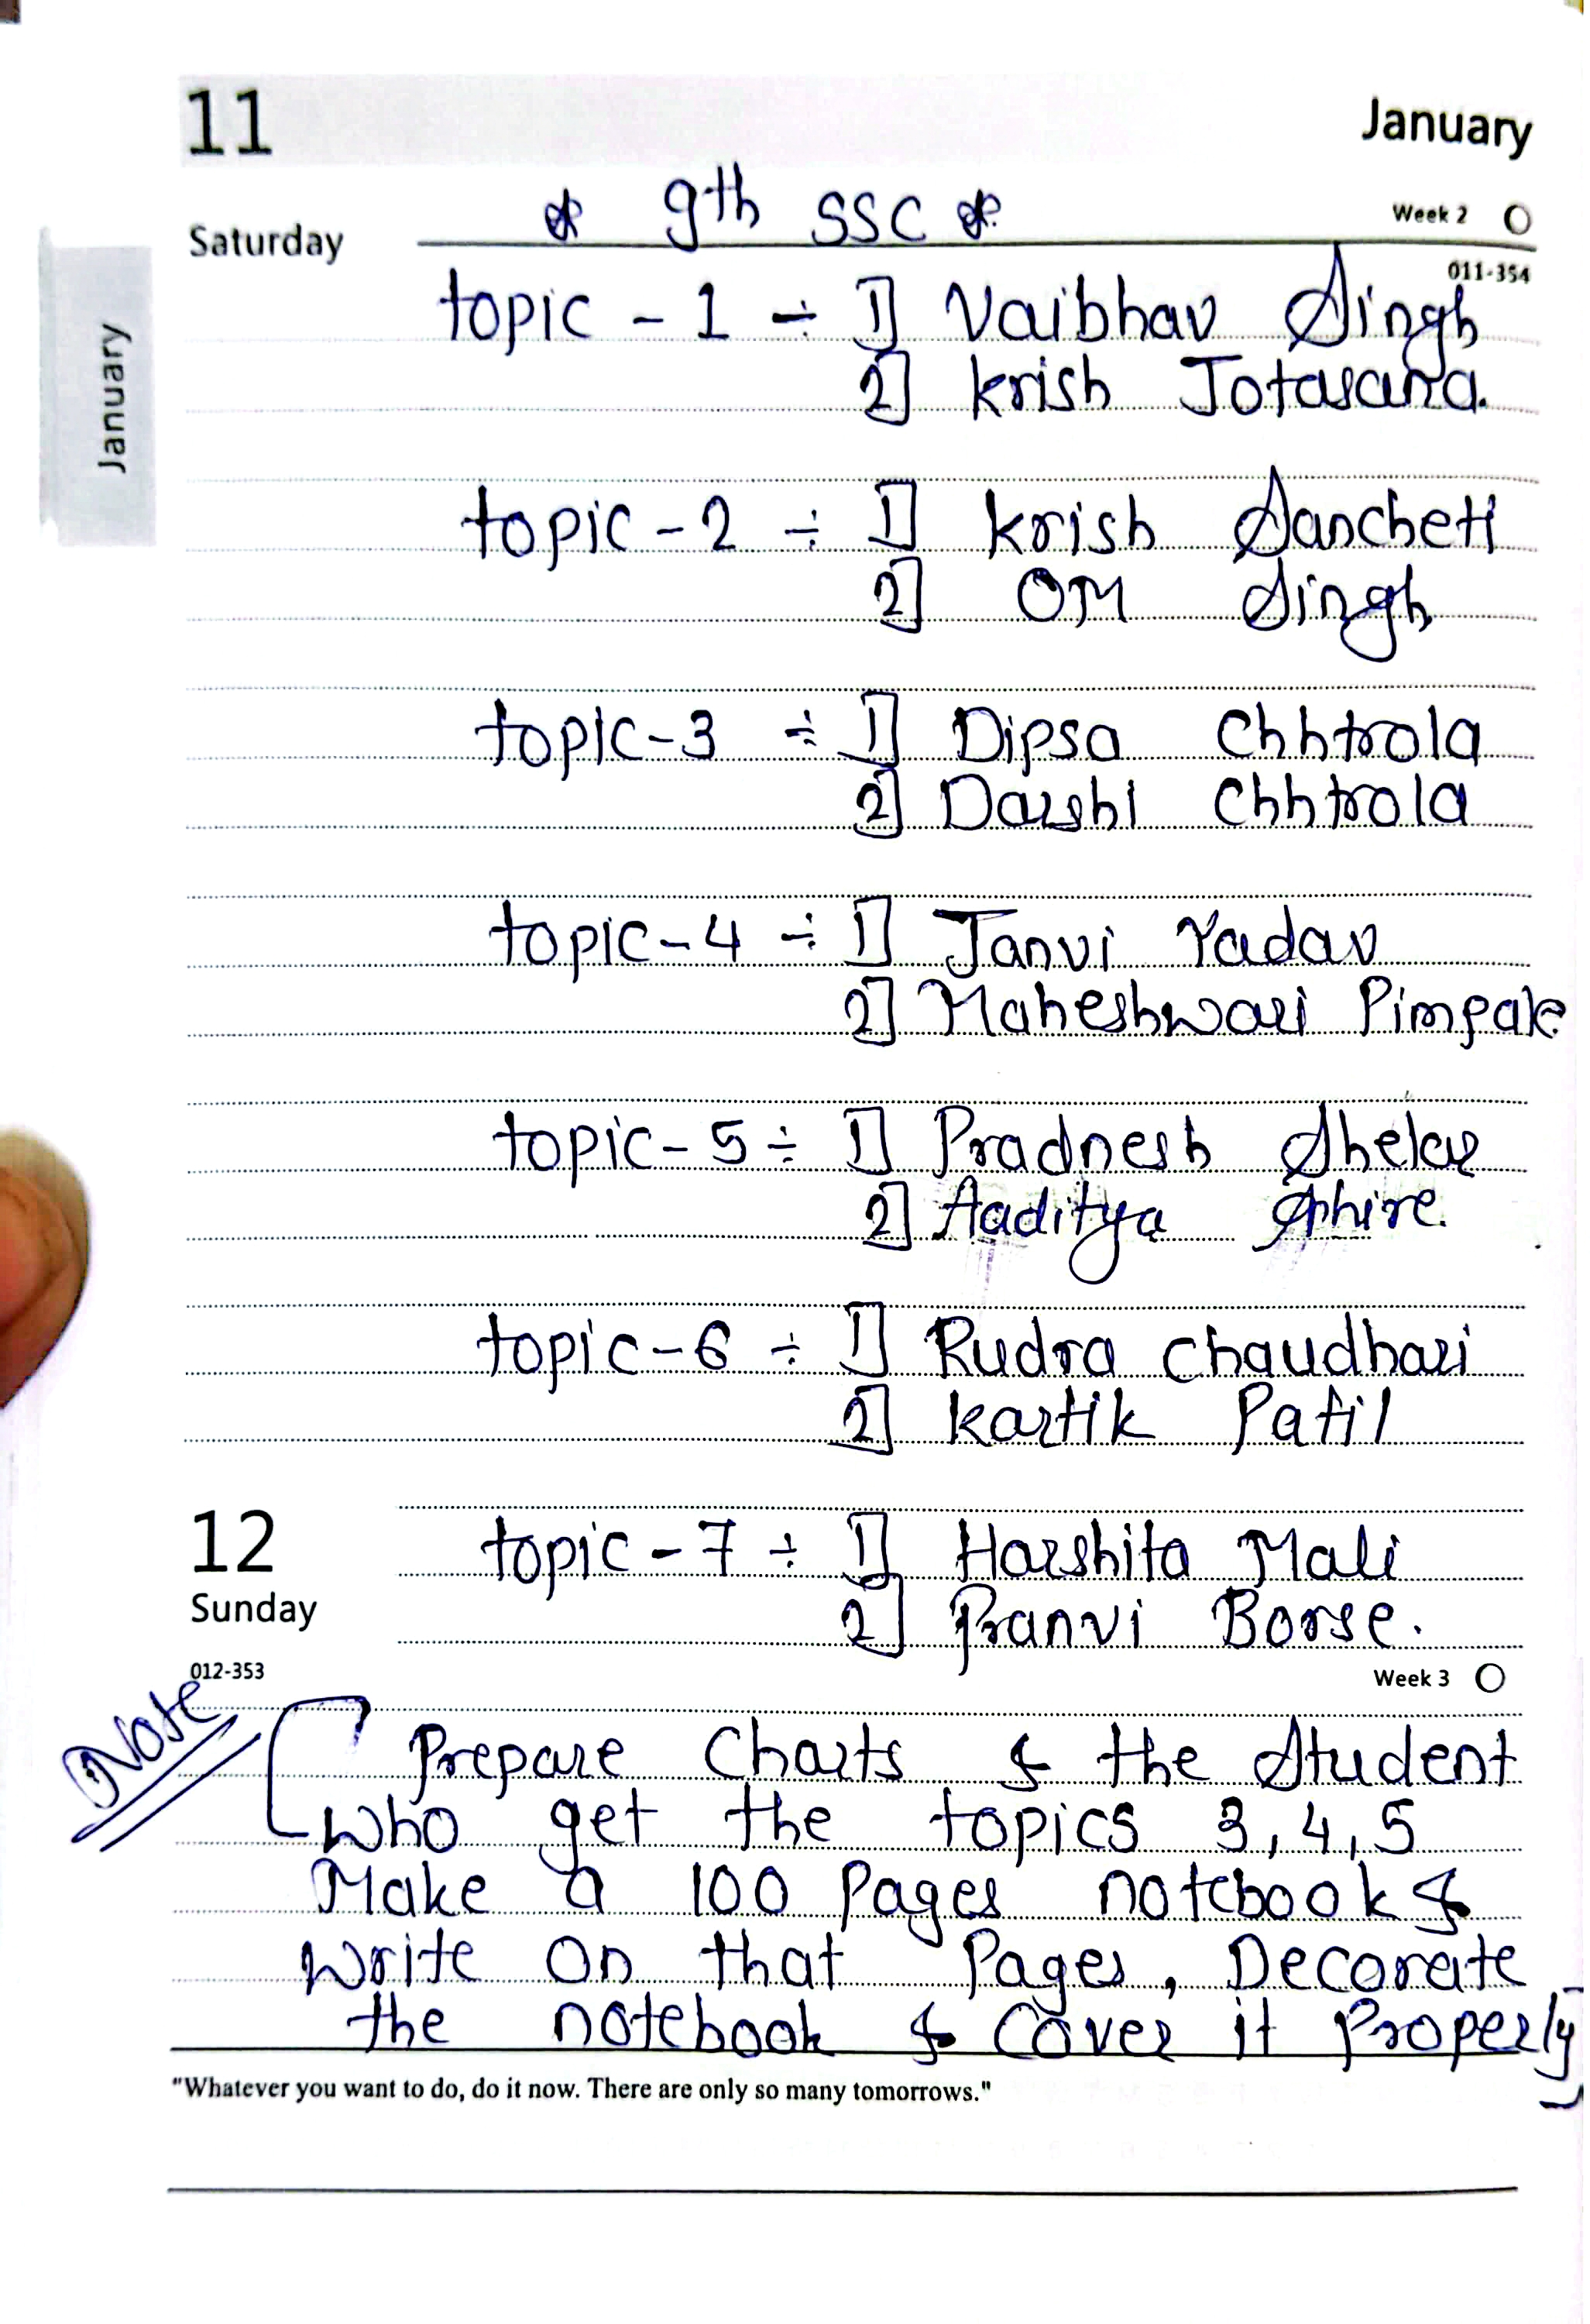 11
January
* 9th SSC *
Saturday
Week 2
011-354
January
topic - 1 ÷ 1] Vaibhav Singh
2] Krish Jotasana.
topic - 2 ÷ 1] Krish Sancheti
2] OM Singh
topic - 3 ÷ 1] Dipsa Chhtrola
2] Darshi Chhtrola
topic - 4 ÷ 1] Janvi Yadav
2] Maheshwari Pimpale
topic - 5 ÷ 1] Pradnesh Shelar
2] Aaditya
topic - 6 ÷ 1] Rudra Chaudhari
2] Kartik Patil
12
topic - 7 ÷ 1] Harshita Mali
Sunday
2] Pranvi Borse.
012-353
Week 3
Note
[Prepare Charts & the Student
who get the topics 3, 4, 5
Make a 100 Pages notebook &
Write on that Pages, Decorate
the notebook & Cover it Properly]
"Whatever you want to do, do it now. There are only so many tomorrows."